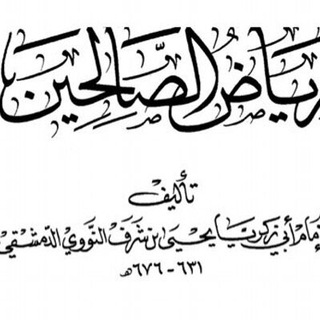 رياض الصالحين
تأليف
الإمام أبي زكريا يحيى بن شرف النووي الدمشقي
٦٣١ - ٦٧٦ هـ